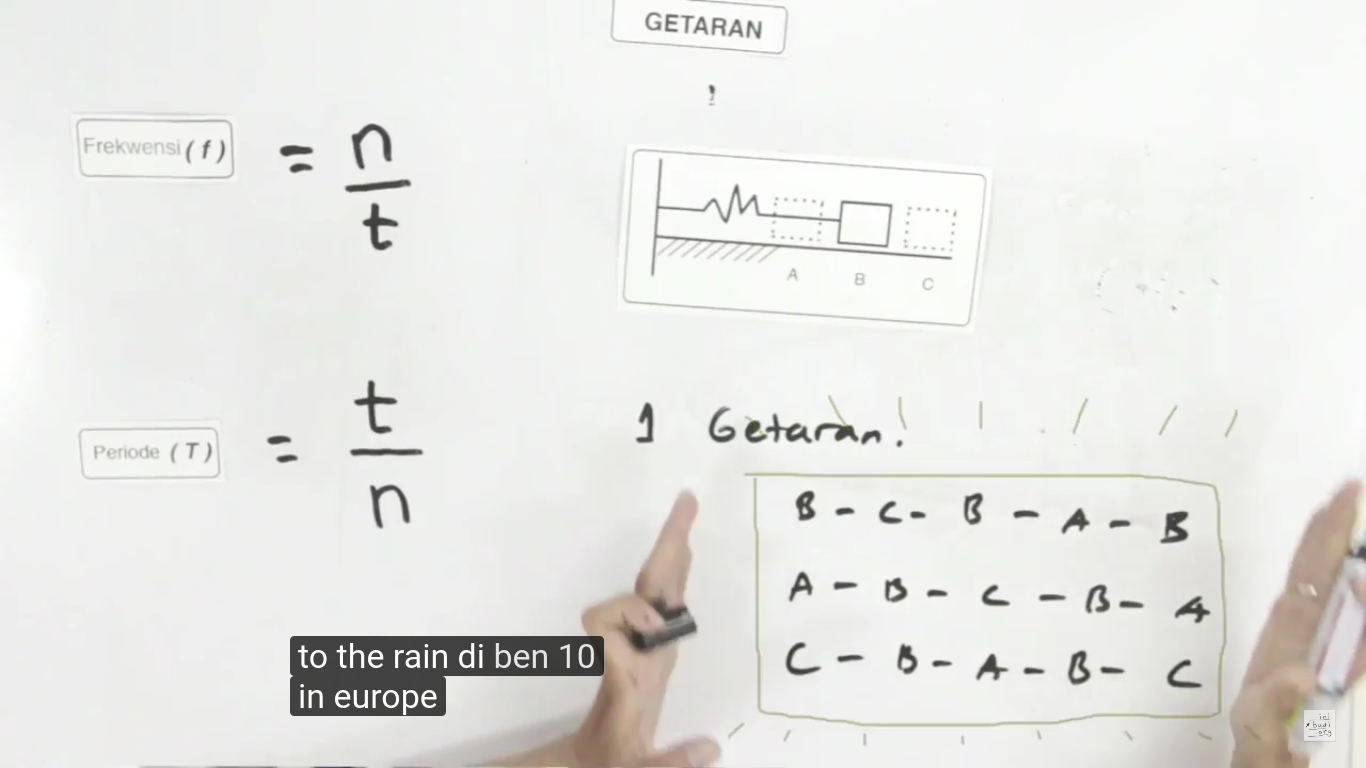 GETARAN
Frekwensi (f) = n/t
A B C
Periode (T) = t/n
1 Getaran.
B - C - B - A - B
A - B - C - B - A
C - B - A - B - C
to the rain di ben 10
in europe
ini
budi
.org